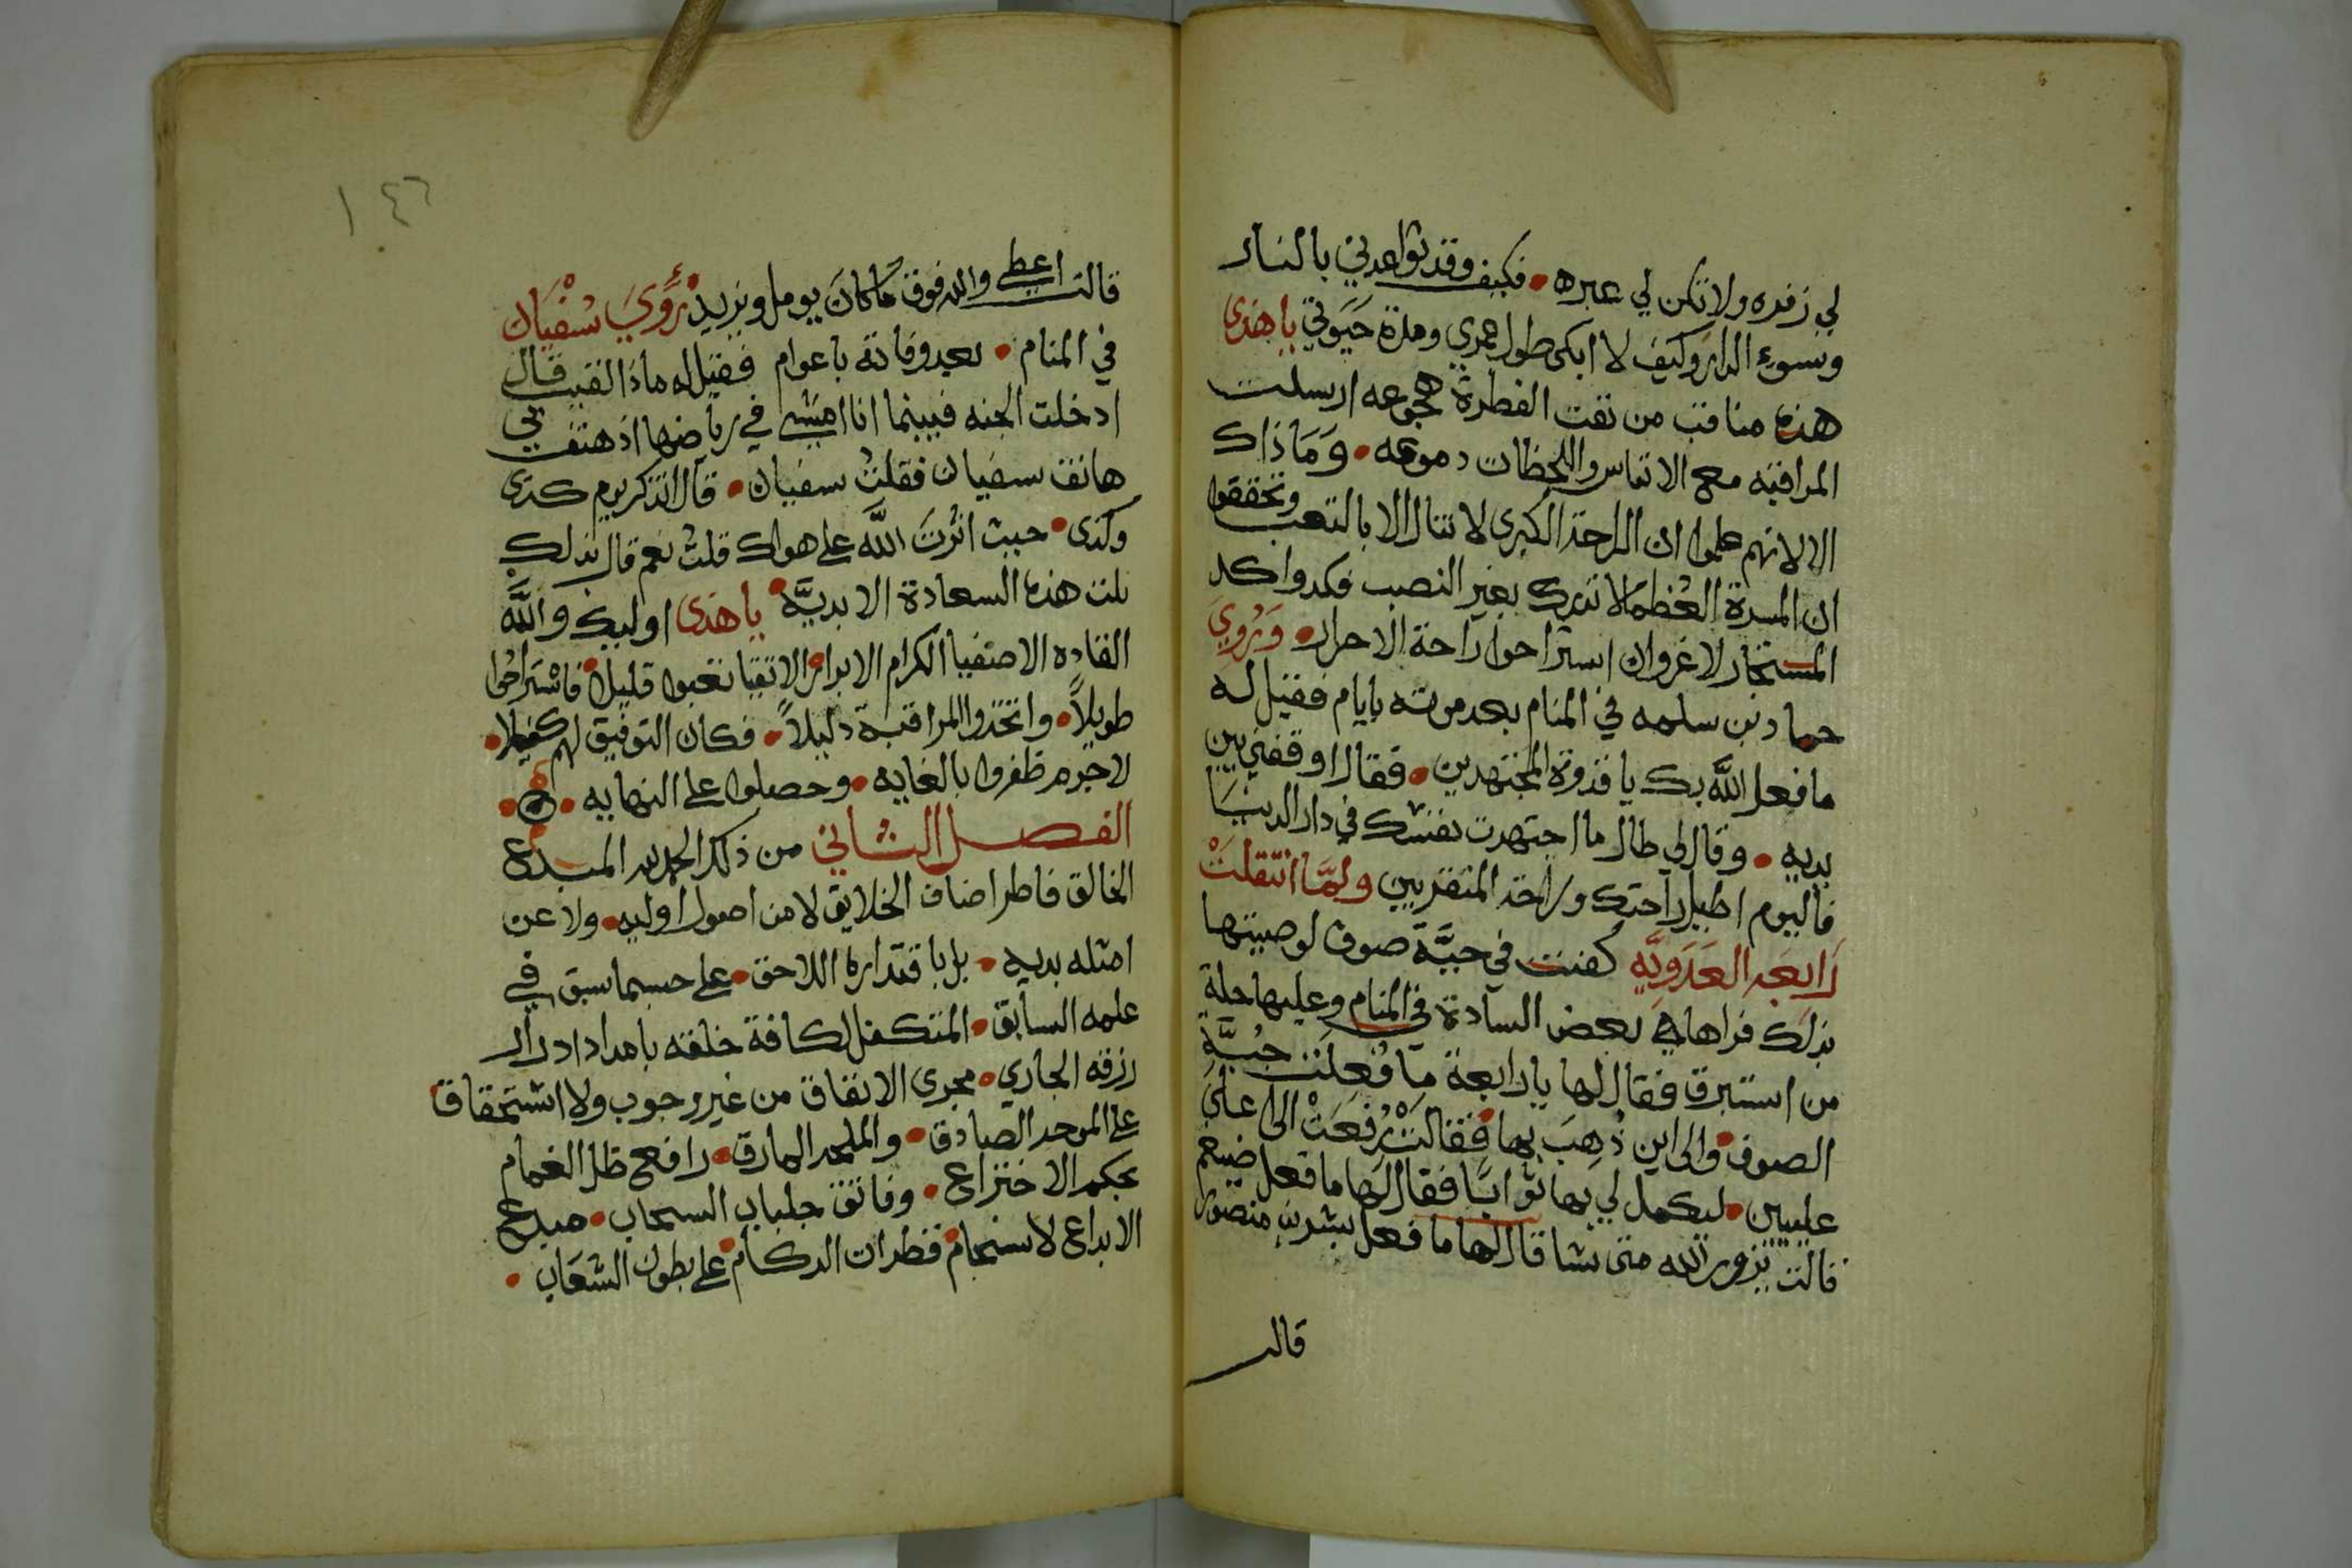 لي زفده ولا تكن لي عبره • فكيف وقد تواعدني بالنار
وبسوء الدار وكيف لا ابكي طول عمري ومدة حيوتي يا هذى
هذه مناقب من نقت الفطرة هجوعه ارسلت
المراقبه مع الانفاس واللحظات دموعه • وَمَا ذاك
الا لانهم علموا ان الراحة الكبرى لا تنال الا بالتعب وتحققوا
ان المسرة العُظمَا لا تدرك بغير النصب فكدوا كد
المستجار لا غروان استراحوا راحة الاحرار • وَرُوِيَ
حماد بن سلمه في المنام بعد موته بايام فقيل له
ما فعل اللَّه بك يا قدوة المجتهدين • فقال اوقفني بين
يديه • وقال لي طال ما اجتهدت بنفسك في دار الدنيَا
فاليوم اطيل راحتك وراحة المتقربين ولمَّا انتقلتْ
رَابعه العَدَوِيَّه كفنت في جبَّة صوف لوصيتها
بذلك فراها في بعض السادة في المنام وعليها حلة
من استبرق فقال لها يا رابعة مَا فُعِلَت جُبَّة
الصوف • والى اين ذُهِبَ بها • فقالتْ رُفِعَتْ الى اعلى
عليين • ليكمل لي بها ثوابًا فقال لها ما فعل ضيغم
قالت يزور الله متى شا قال لها ما فعل بشر بن منصور
قالت
قالت اعطي والله فوق ما كانَ يومل ويزيد • رُؤيَ سُفْيَان
في المنام • بعد وفاته باعوام فقيل له ماذا لقيت قال
ادخلت الجنه فبينما انا امشي في رياضها اذ هتف بي
هاتف سفيان فقلتُ سفيان • قال اتذكر يوم كذى
وكذى • حيث اثرتَ اللَّه على هواك قلتُ نعم قال بذلك
نلت هذه السعادة الابديَّه • يا هذى اوليك واللَّه
القاده الاصفيا الكرام الابرار • الاتقيا تعبوا قليلا • فاستراحُوا
طويلاً • واتخذوا المراقبة دليلاً • فكان التوفيق لهم كفيلا •
لاجرم ظفروا بالغايه • وحصلوا على النهايه •
الفصل الثاني من ذكر الحمد لله المبدع
الخالق فاطر اصناف الخلايق لا من اصول اوليه • ولا عن
امثله بديه • بل باقتداره اللاحق • على حسبما سبق في
علمه السابق • المتكفل لكافة خلقه بامداد ادرار
رزقه الجاري • مجرى الانفاق من غير وجوب ولا استحقاق
على الموحد الصادق • والملحد المارق • رافع ظلل الغمام
بحكم الاختراع • وفاتق جلباب السحاب • مبدع
الابداع لانسجام • قطرات الركام • على بطون الشعَاب •
١٤٦